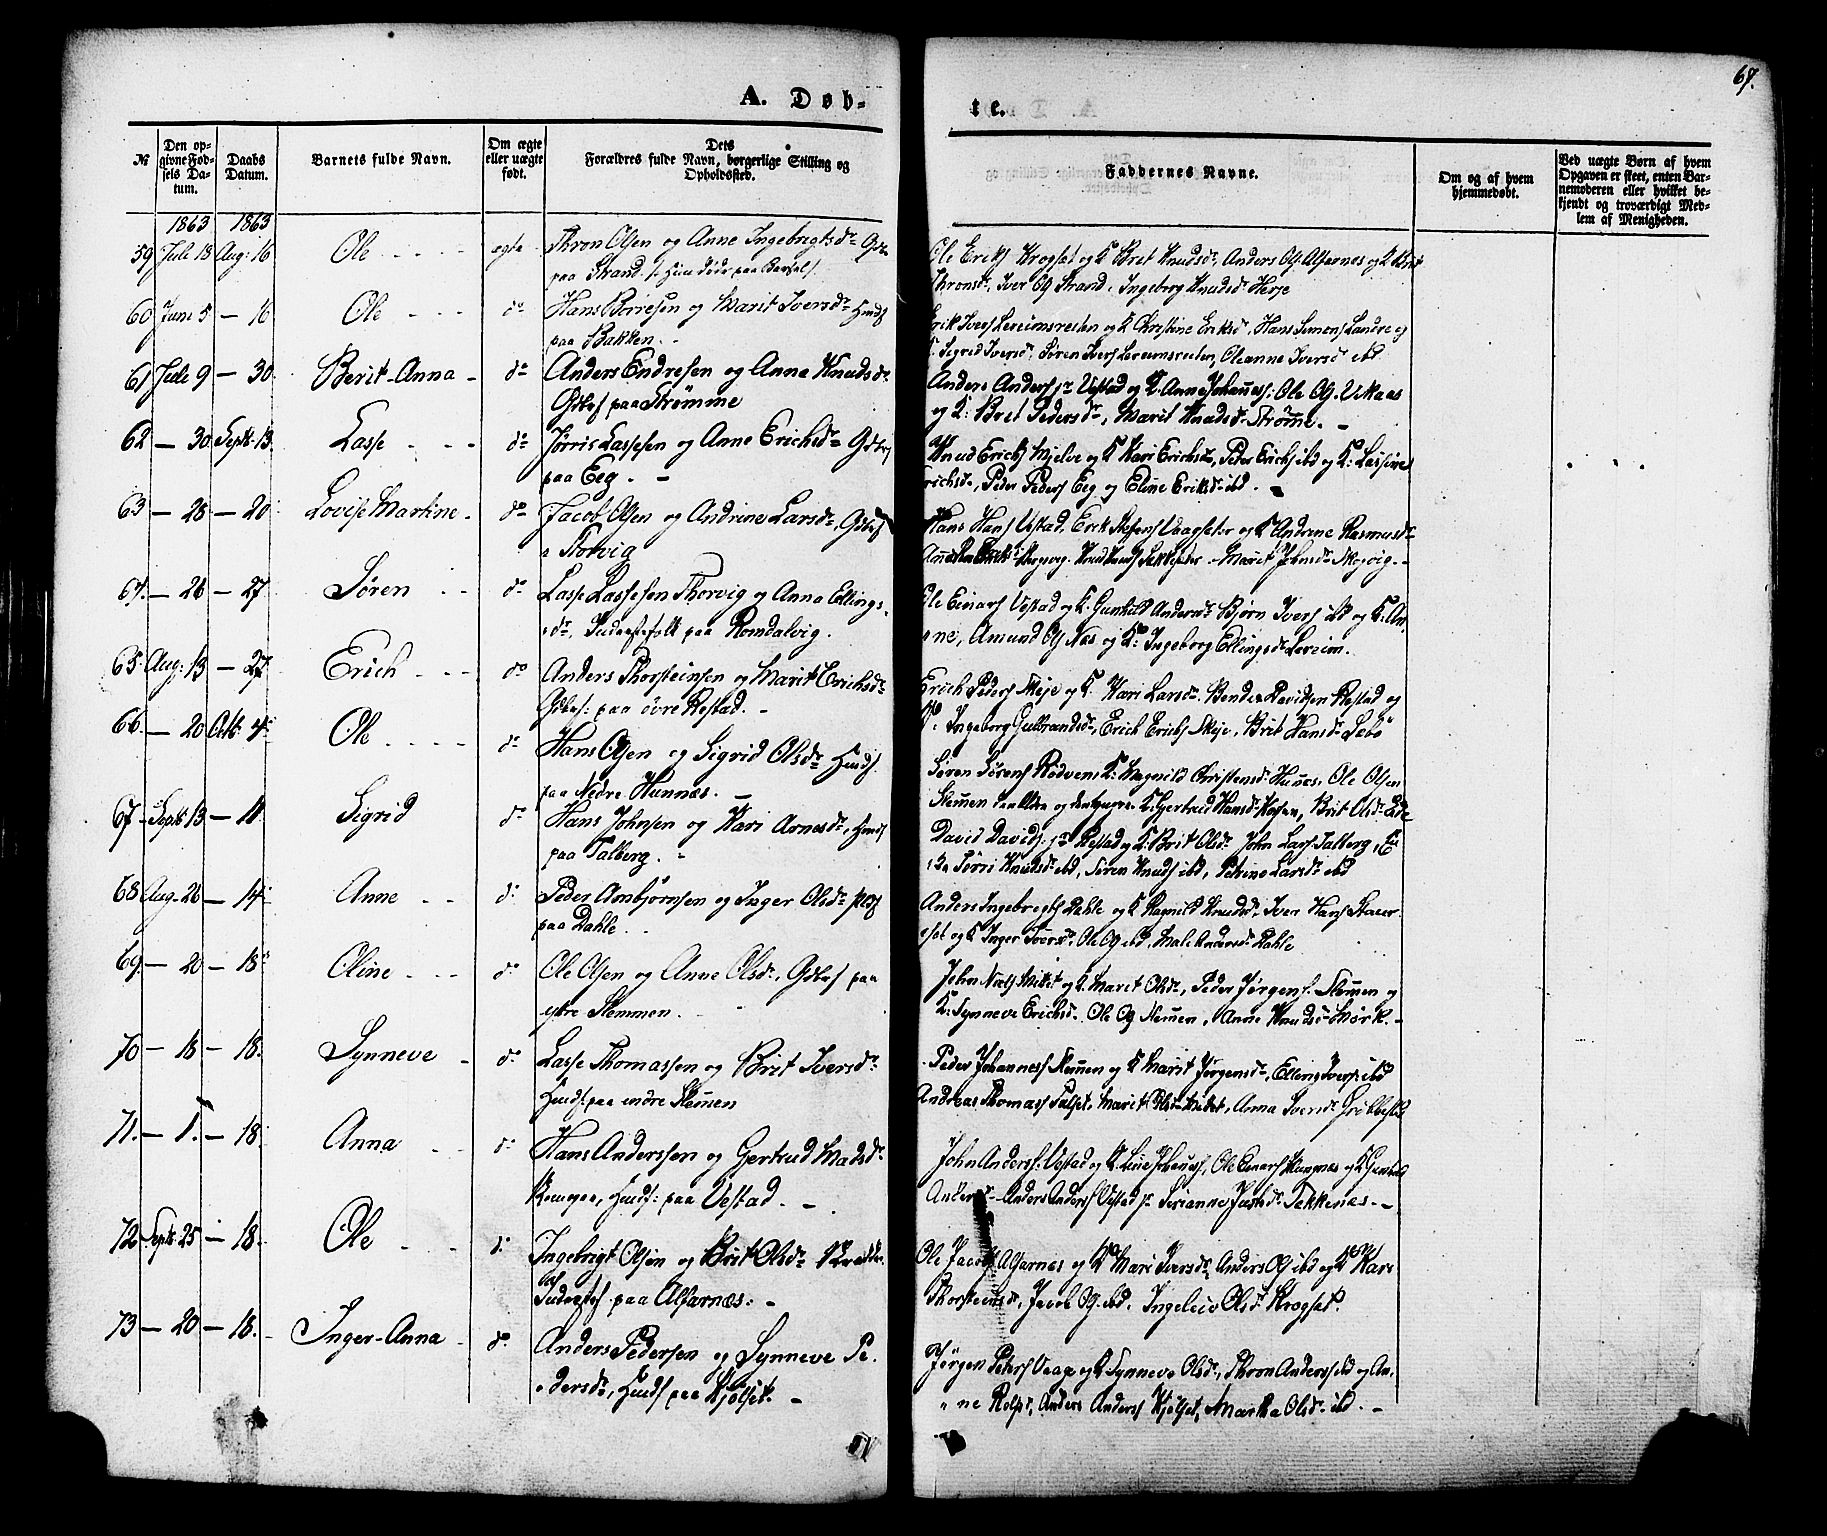 67.
A. Døb-
te.
№
Den op-
givne Fød-
sels Da-
tum.
Daabs
Datum.
Barnets fulde Navn.
Om ægte
eller uægte
født.
Dets
Forældres fulde Navn, borgerlige Stilling og
Opholdssted.
Faddernes Navne.
Om og af hvem
hjemmedøbt.
Ved uægte Børn af hvem
Opgaven er skeet, enten Bar-
nemoderen eller hvilket be-
kjendt og troværdigt Med-
lem af Menigheden.
1863 1863
59 Juli 18 Aug: 16 Ole ægte Thron Olsen og Anne Ingebrigtsdr
paa Strand.
Ole Eriks Krogset og K Bret Knudsdr, Anders Ols Alfarnes og K Brit
Thronsdr, Iver Ols Strand, Ingeborg Knudsdr Herje
60 Juni 5 — 16 Ole do Hans Børresen og Marit Iversdr Huusf
paa Bakken.
Erik Ivers Lereimsreiten og K Christine Eriksdr, Hans Simons Landre og
K. Sigrid Iversdr, Søren Ivers Lereimsreiten, Oleanne Iversdr ibd
61 Juli 9 — 30 Berit-Anna do Anders Endresen og Anna Knudsdr
Gdbrf paa Strømme
Anders Anders jr Vestad og K. Anne Johannesd: Ole Ols.
og K: Bret Pedersdr, Marit Knudsdr Strømme. -
62 — 30 Sept. 13. Lasse do Jørris Lassesen og Anne Erichsdr Gdbrf
paa Eeg.
Knud Erichs Mjelve og K Kari Erichsdr, Peder Erichs ibd og K: Lassine
Erichsdr, Peder Peders Eeg og Eline Eriksdr ibd.
63 — 28 — 20 Lovise Martine do Jacob Olsen og Andrine Larsdr, Gdbrf
" Torvig
Hans Hans Vestad, Erik Stefens Vaagseter og K Andrine Rasmusdr
Marit Johnsdr Skogvig.
64. — 26 — 27 Søren do Lasse Lassesen Thorvig og Anna Ellings-
dr, Inderstefolk paa Romdalvig.
Ole Einars Vestad og K. Gunhild Andersdr Bjørn Ivers ibd og K: An-
"ne, Amund Ols Næs og K: Ingeborg Ellingsdr Lereim.
65. Aug: 13 — 27 Erich do Anders Thorsteinsen og Marit Erichsdr
Gdbrf: paa øvre Restad.
Erich Peders Skeje og K. Kari Larsdr. Bendix Davidsen Restad og
K. Ingeborg Gulbrandsdr, Erich Erichs Skeje, Brit Hansdr Sebø
66. — 20 Oct: 4 Ole do Hans Olsen og Sigrid Olsdr Huusf.
paa Nedre Hunnæs.
Søren Sørens Rødven K: Magnild Christensdr Hunæs. Ole Olsen
Stemen den Ældre og den yngre. K. Gjertrud Hansdr Brit Olsdr
67 Sept. 13 — 11 Sigrid do Hans Johnsen og Kari Arnesdr, Huusf
paa Talberg.
David Davids jr Restad og K. Brit Olsdr John Lars Talberg,
Tørri Knudsdr ibd, Søren Knuds ibd, Petrine Larsdr ibd
68 Aug. 26 — 14 Anne do Peder Arnbjørnsen og Inger Olsdr
paa Dahle.
Anders Ingebrigts Dahle og K Ragnild Knudsdr. Iver Hans
"set og K Inger Iversdr. Ole Ols ibd, Mali Andersdr Dahle
69. — 20 — 18 Oline do Ole Olsen og Anne Olsdr, Gdbrf paa
ytre Stemmen.
John Niels Mittet og K. Marit Olsdr, Peder Jørgens. Stemmen og
K: Synneve Erichsd. Ole Ols Stemmen, Anne Knudsdr Mørk.
70 — 16 — 18. Synneve do Lasse Thomassen og Brit Iversdr
Huusf: paa indre Stemmen
Peder Johanness Stemmen og K Marit Jørgensdr, Elling Ivers ibd
Andreas Thomass Talset, Marit Olsdr Mittet, Anna Iversdr
71. — 1. — 18 Anna do Hans Anderssen og Gertrud Madsdr
Huusf: paa Vestad.
John Anders. Vestad og K. Ole Einars og K Gunhild
Andersdr Anders Anders Vestad jr Serianne Tokkenæs.
72 Sept. 25 — 18. Ole do Ingebrigt Olsen og Brit Olsdr
Inderstef paa Alfarnæs.
Ole Jacobs Alfarnæs og K Mari Iversdr, Anders Ols ibd og K Kari
Thorsteinsdr, Jacob Ols ibd. Ingeleiv Olsdr Krogset.
73 — 20 — 18. Inger-Anna do Anders Pedersen og Synneve Pe-
"dersdr, Huusf paa Kjølset.
Jørgen Peters Vaage og K. Synneve Olsdr, Thron Anders ibd og An-
"ne Rolfsdr, Anders Anders Kjølset, Martha Olsdr ibd.